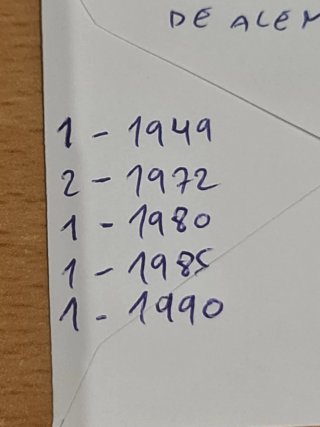 DE ALEM
1 - 1949
2 - 1972
1 - 1980
1 - 1985
1 - 1990